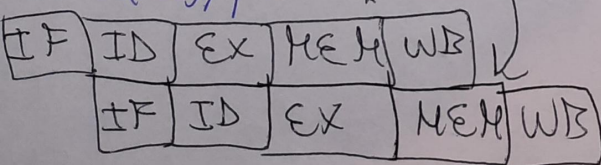 IF ID EX MEM WB
IF ID EX MEM WB